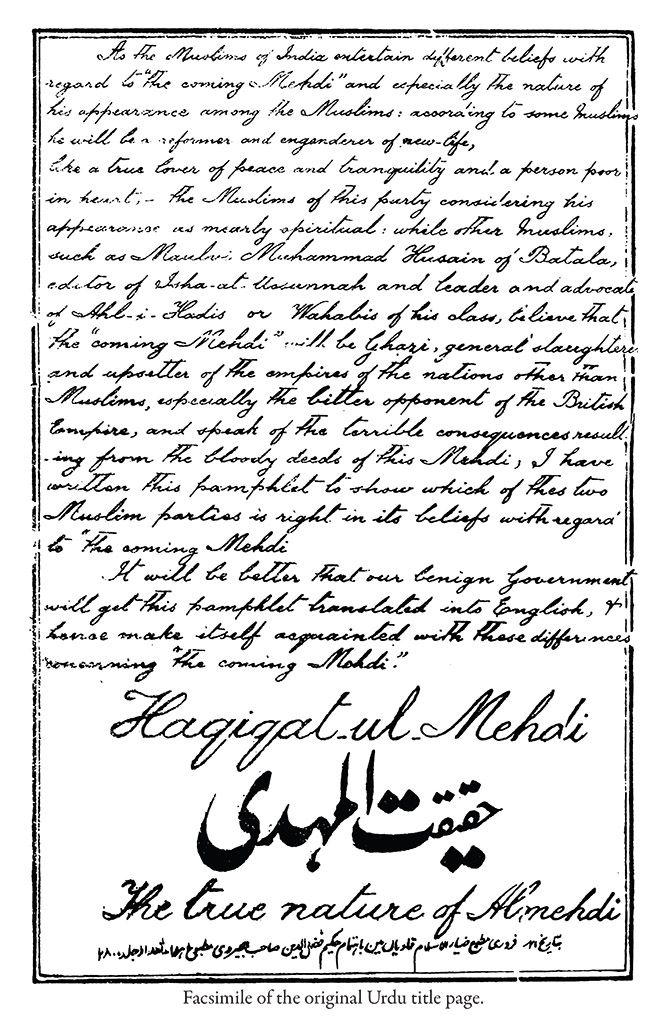 As the Muslims of India entertain different beliefs with
regard to "the coming Mehdi" and especially the nature of
his appearance among the Muslims: according to some Muslims
he will be a reformer and engenderer of new-life,
like a true lover of peace and tranquility and a person poor
in heart,- the Muslims of this party considering his
appearance as mearly spiritual: while other Muslims,
such as Maulvi Muhammad Husain of Batala,
editor of Isha-at-Ussunnah and leader and advocate
of Ahl-i-Hadis or Wahabis of his class, believe that
"the "coming Mehdi" will be Ghazi, general slaughterer
and upsetter of the empires of the nations other than
Muslims, especially the bitter opponent of the British
Empire, and speak of the terrible consequences result
-ing from the bloody deeds of this Mehdi; I have
written this pamphlet to show which of thes two
Muslim parties is right in its beliefs with regard
to "the coming Mehdi
It will be better that our benign Government
will get this pamphlet translated into English, &
hence make itself acquainted with these differences
concerning "the coming Mehdi".
Haqiqat-ul-Mehdi
حقیقت المہدی
The true nature of Almehdi
بتاریخ ۲۱ فروری مطبع ضیاء الاسلام قادیان میں باہتمام حکیم فضل الدین صاحب بھیروی
Facsimile of the original Urdu title page.